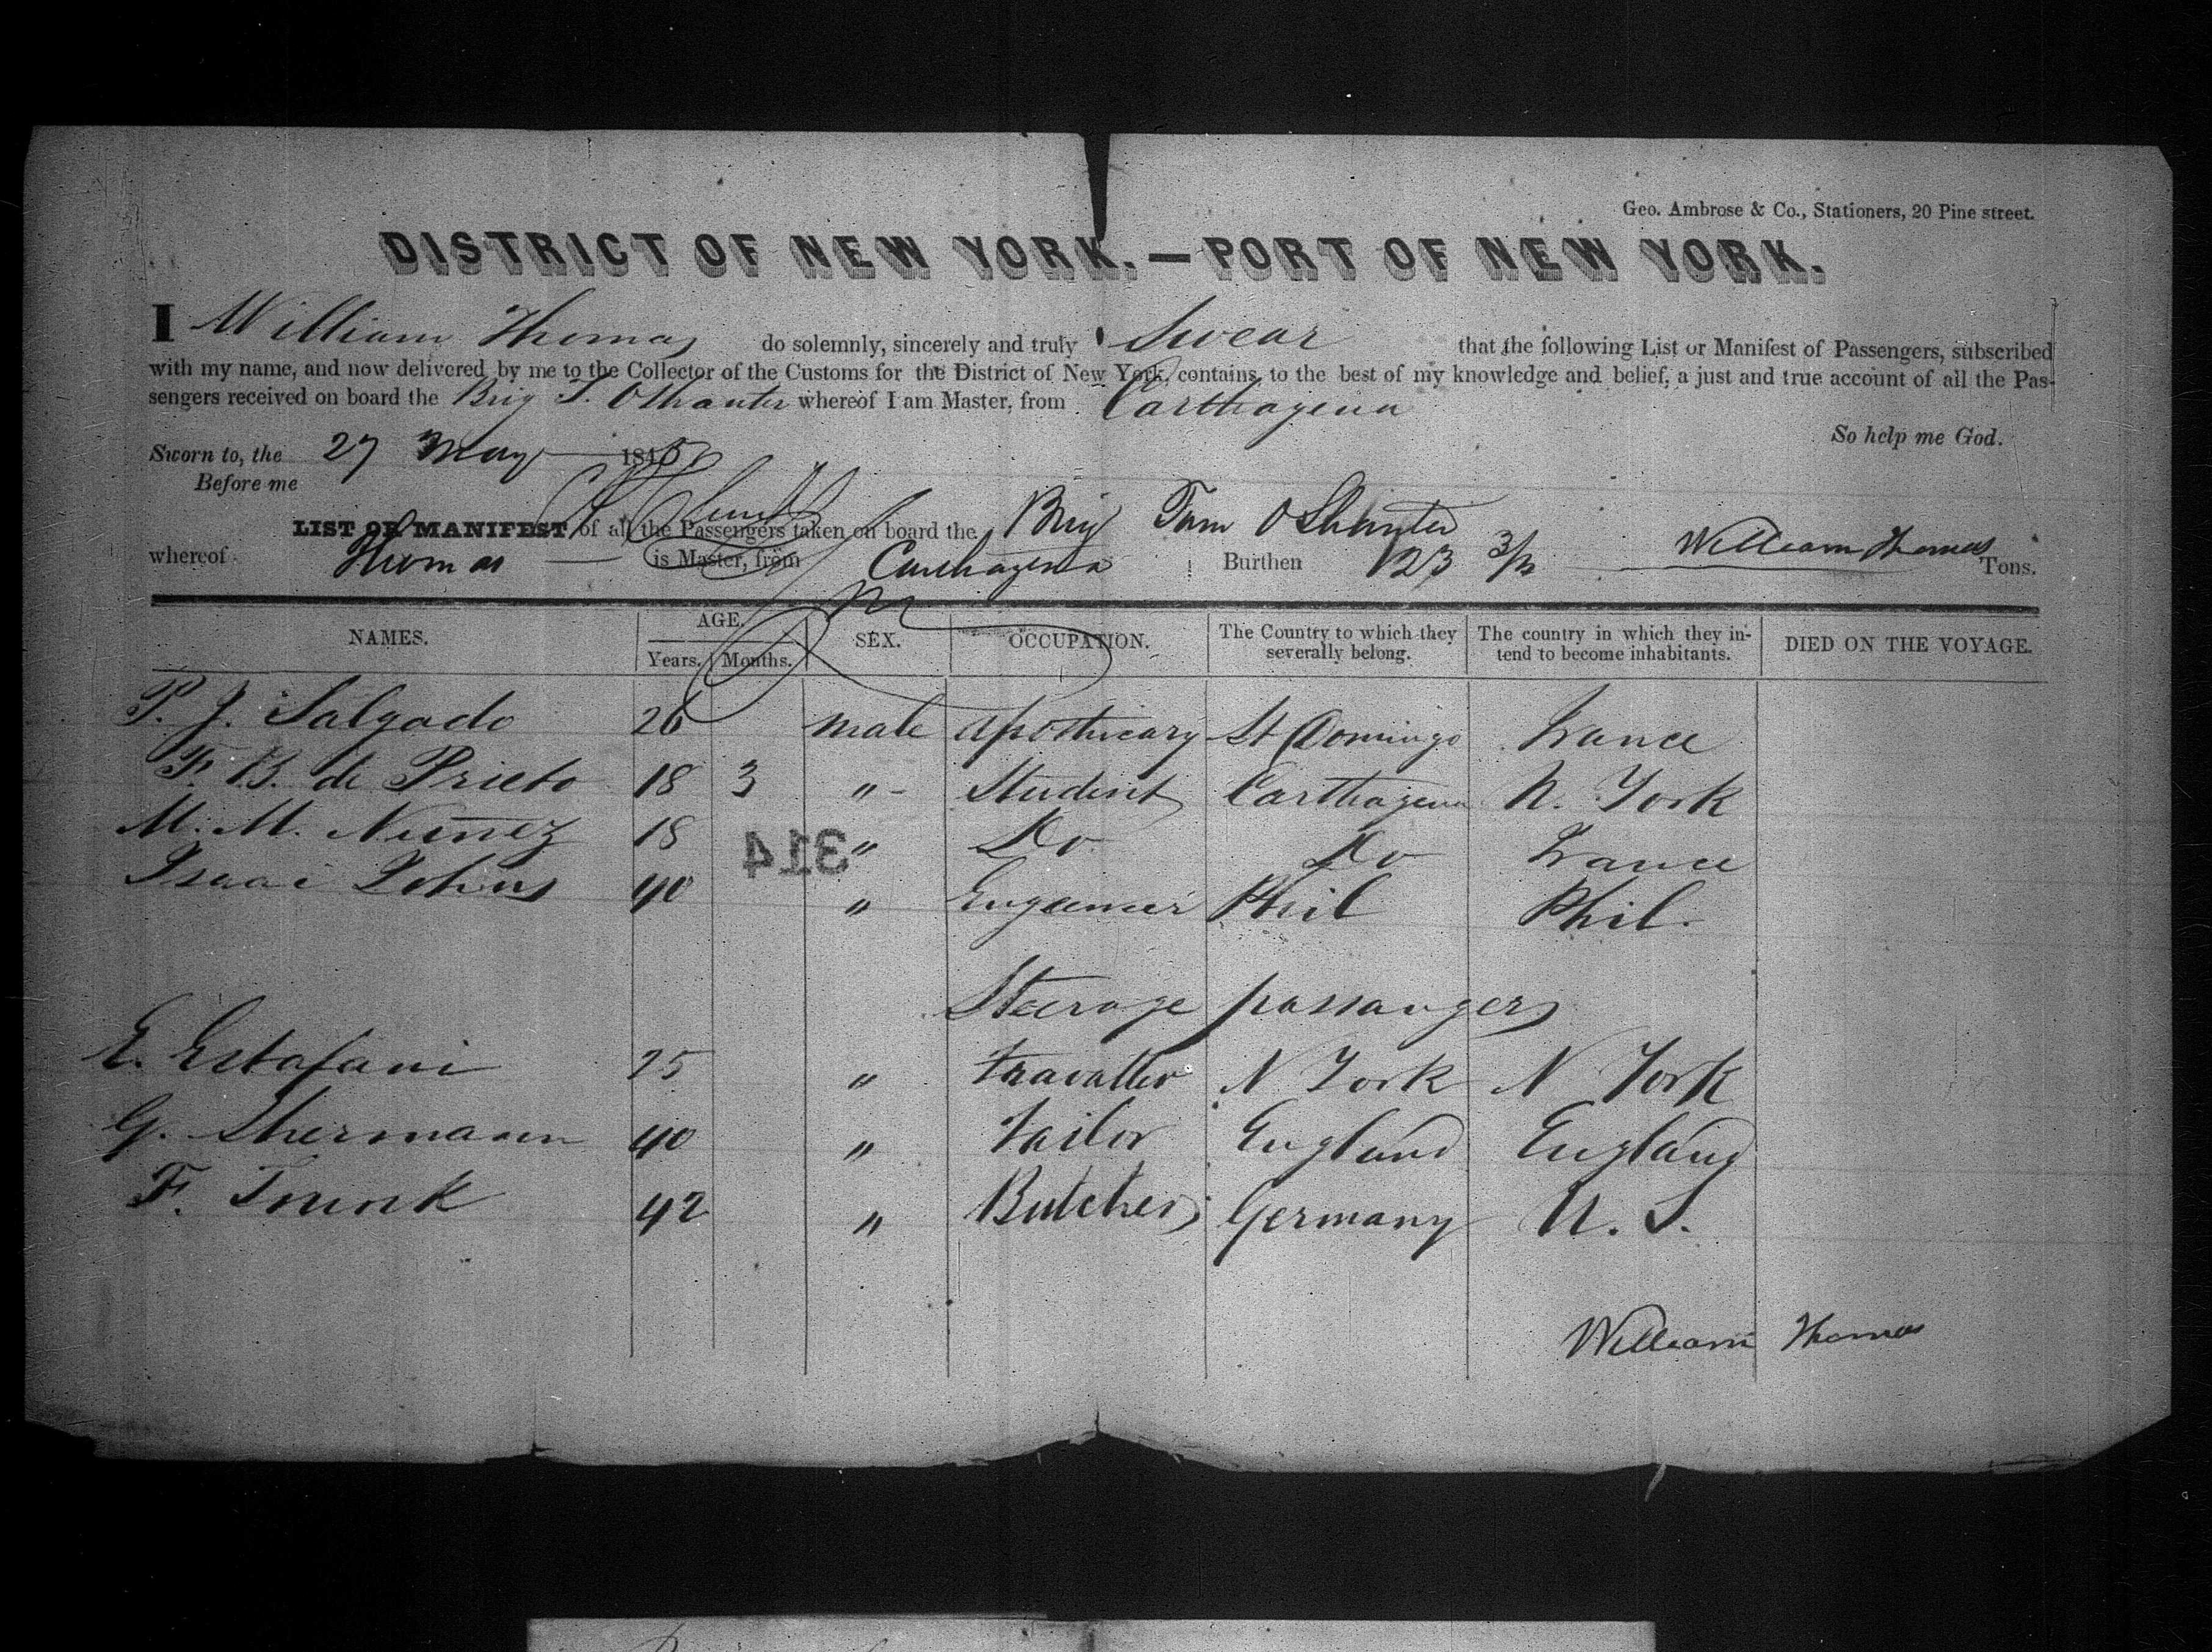 Geo. Ambrose & Co., Stationers, 20 Pine street.
DISTRICT OF NEW YORK.—PORT OF NEW YORK.
I William Thomas do solemnly, sincerely and truly Swear that the following List or Manifest of Passengers, subscribed
with my name, and now delivered by me to the Collector of the Customs for the District of New York, contains, to the best of my knowledge and belief, a just and true account of all the Pas-
sengers received on board the Brig T. OShanter whereof I am Master, from Carthagena
So help me God.
Sworn to, the 27 May 18
Before me
LIST OR MANIFEST of all the Passengers taken on board the Brig Tam OShanter
William Thomas
whereof Thomas is Master, from Carthagena Burthen 123 Tons.
NAMES. AGE. SEX. OCCUPATION. The Country to which they severally belong. The country in which they in- tend to become inhabitants. DIED ON THE VOYAGE.
Years. Months.
P. J. Salgado 26 male apothecary St Domingo France
F. B. de Prieto 18 3 " Student Carthagena N. York
M. M. Nuñez 18 " Do Do France
314
Isaac Johns 40 " Engeineer Phil Phil.
Steerage passangers
E. Estafani 25 " travaller N York N York
G. Shermann 40 " Tailor England England
F. Trunk 42 " Butcher Germany U. S.
William Thomas